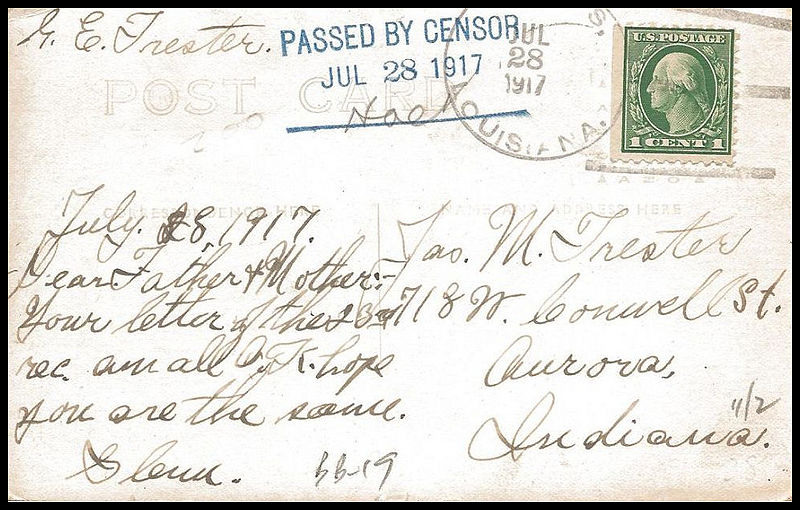 G. E. Trester.
PASSED BY CENSOR
JUL 28 1917
JUL
28
1917
LOUISIANA.
U.S. POSTAGE
1 CENT 1
POST CARD
CORRESPONDENCE HERE
NAME AND ADDRESS HERE
July. 28, 1917.
Dear Father & Mother:-
Your letter of the 23rd
rec. am all O.K. hope
you are the same.
Glenn.
Jas. M. Trester
718 W. Conwell St.
Aurora,
Indiana.
11/2
bb-19